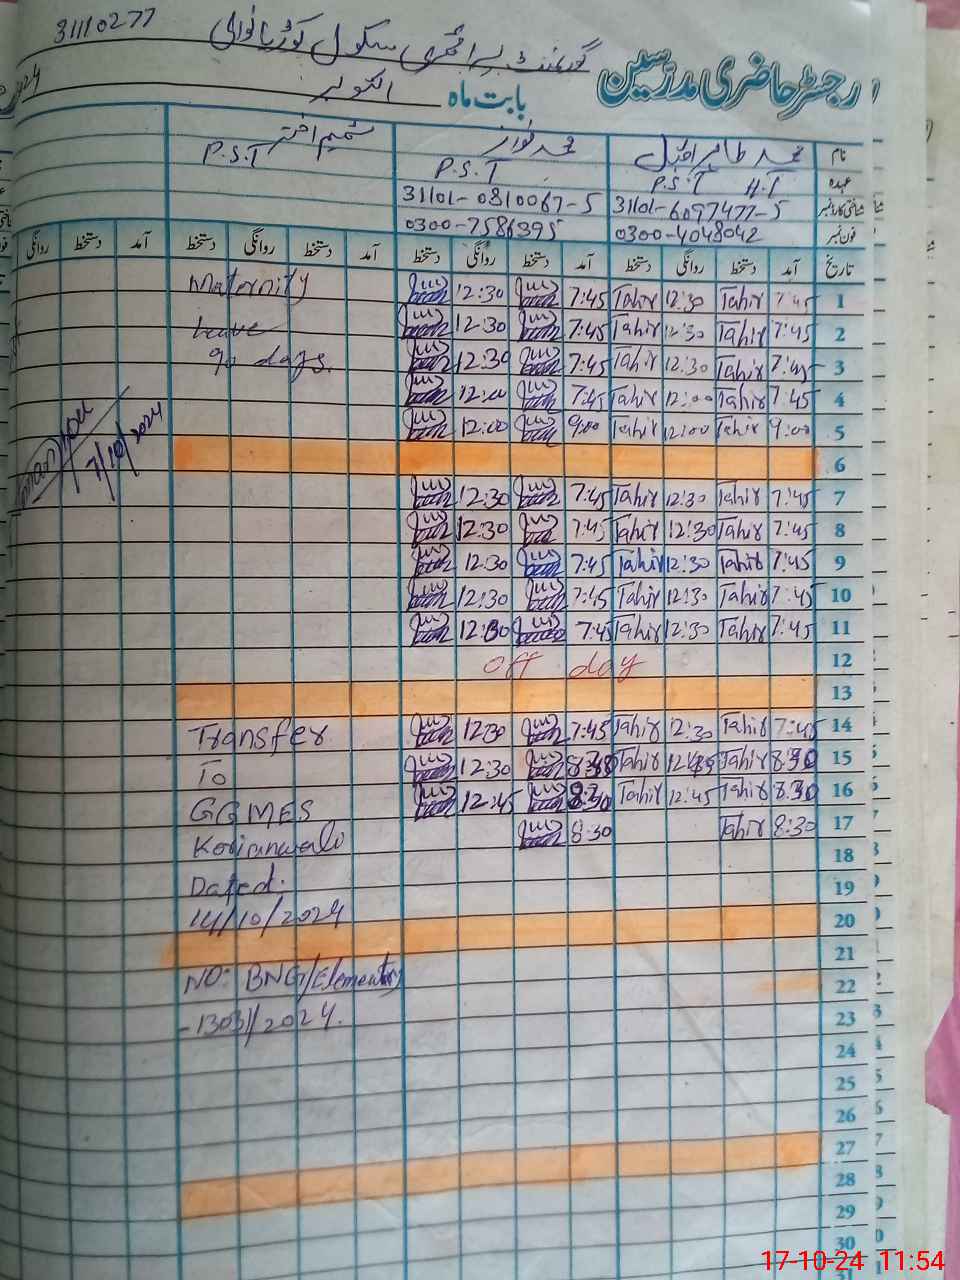 31110277
گورنمنٹ پرائمری سکول کوڑیانوالی
رجسٹر حاضری مدرسین
بابت ماہ اکتوبر 2024
نام محمد طاہر اقبال محمد نواز شمیم اختر
عہدہ P.S.T H.T P.S.T P.S.T
شناختی کارڈ نمبر 31101-6097477-5 31101-0810067-5
فون نمبر 0300-4048042 0300-7586395
تاریخ آمد دستخط روانگی دستخط آمد دستخط روانگی دستخط آمد دستخط روانگی دستخط آمد دستخط روانگی
1 7:45 Tahir 12:30 Tahir 7:45 12:30 Maternity
2 7:45 Tahir 12:30 Tahir 7:45 12:30 Leave
3 7:45 Tahir 12:30 Tahir 7:45 12:30 90 days.
4 7:45 Tahir 12:00 Tahir 7:45 12:00
5 9:00 Tahir 12:00 Tahir 9:00 12:00
7/10/2024
6
7 7:45 Tahir 12:30 Tahir 7:45 12:30
8 7:45 Tahir 12:30 Tahir 7:45 12:30
9 7:45 Tahir 12:30 Tahir 7:45 12:30
10 7:45 Tahir 12:30 Tahir 7:45 12:30
11 7:45 Tahir 12:30 Tahir 7:45 12:30
12 off day
13
14 7:45 Tahir 12:30 Tahir 7:45 12:30 Transfer
15 8:30 Tahir Tahir 12:30 To
16 8:30 Tahir 12:45 Tahir 8:30 12:45 GGMES
17 8:30 Tahir 8:30 Korianwali
18
19 Dated:
20 14/10/2024
21
22 NO: BNG/Elementary
23 -1303/2024.
24
25
26
27
28
29
30
31
17-10-24 11:54